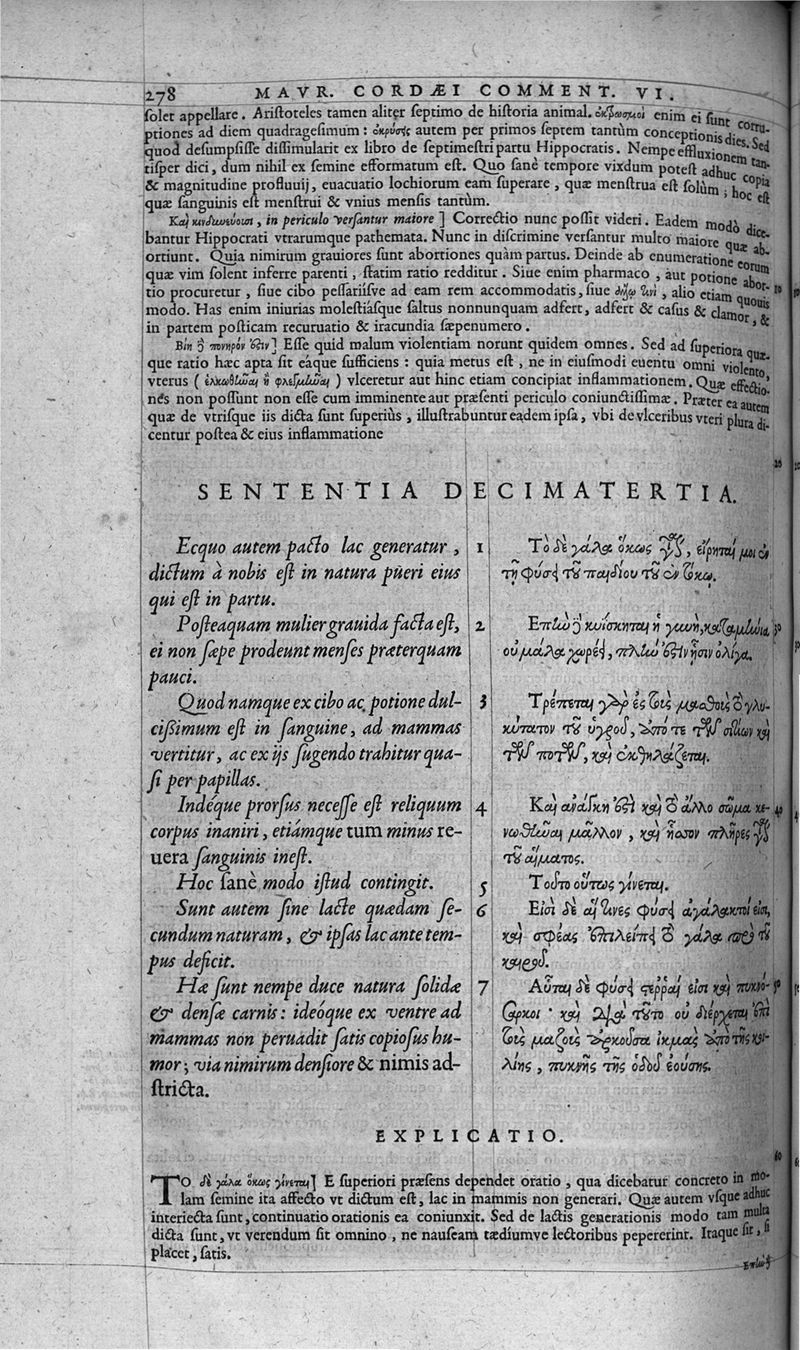 278 MAVR. CORDÆI COMMENT. VI.
ſolet appellare. Ariſtoteles tamen aliter ſeptimo de hiſtoria animal. ἐκρυσμοὶ enim ei ſunt corru-
ptiones ad diem quadrageſimum: ἐκρύσις autem per primos ſeptem tantùm conceptionis dies. Sed
quod deſumpſiſſe diſſimularit ex libro de ſeptimeſtri partu Hippocratis. Nempe effluxionem tan-
tiſper dici, dum nihil ex ſemine efformatum eſt. Quo ſanè tempore vixdum poteſt adhuc copia
& magnitudine profluuij, euacuatio lochiorum eam ſuperare, quæ menſtrua eſt ſolùm; hoc eſt
quæ ſanguinis eſt menſtrui & vnius menſis tantùm.
Καὶ κινδυνεύουσι, in periculo verſantur maiore] Correctio nunc poſſit videri. Eadem modò dice-
bantur Hippocrati vtrarumque pathemata. Nunc in diſcrimine verſantur multo maiore quæ ab-
ortiunt. Quia nimirum grauiores ſunt abortiones quàm partus. Deinde ab enumeratione eorum
quæ vim ſolent inferre parenti, ſtatim ratio redditur. Siue enim pharmaco, aut potione abor-
tio procuretur, ſiue cibo peſſariiſve ad eam rem accommodatis, ſiue ἄλλῳ τινὶ, alio etiam quouis
modo. Has enim iniurias moleſtiáſque ſaltus nonnunquam adfert, adfert & caſus & clamor, &
in partem poſticam recuruatio & iracundia ſæpenumero.
Βίη δὲ πονηρόν ἐστιν] Eſſe quid malum violentiam norunt quidem omnes. Sed ad ſuperiora quæ-
que ratio hæc apta ſit eáque ſufficiens: quia metus eſt, ne in eiuſmodi euentu omni violento,
vterus (ἑλκωθῆναι ἢ φλεγμῆναι) vlceretur aut hinc etiam concipiat inflammationem. Quæ effectio-
nes non poſſunt non eſſe cum imminente aut præſenti periculo coniunctiſſimæ. Præter ea autem
quæ de vtriſque iis dicta ſunt ſuperiùs, illuſtrabuntur eadem ipſa, vbi de vlceribus vteri plura di-
centur poſtea & eius inflammatione
SENTENTIA DECIMATERTIA.
Ecquo autem pacto lac generatur,
dictum à nobis eſt in natura pueri eius
qui eſt in partu.
Poſteaquam mulier grauida facta eſt,
ei non ſæpe prodeunt menſes præterquam
pauci.
Quod namque ex cibo ac potione dul-
ciſſimum eſt in ſanguine, ad mammas
vertitur, ac ex ijs ſugendo trahitur qua-
ſi per papillas.
Indéque prorſus neceſſe eſt reliquum
corpus inaniri, etiámque tum minus re-
uera ſanguinis ineſt.
Hoc ſanè modo iſtud contingit.
Sunt autem ſine lacte quædam ſe-
cundum naturam, & ipſas lac ante tem-
pus deficit.
Hæ ſunt nempe duce natura ſolidæ
& denſæ carnis: ideóque ex ventre ad
mammas non peruadit ſatis copioſus hu-
mor; via nimirum denſiore & nimis ad-
ſtricta.
1 Τὸ δὲ γάλα ὅκως γίνεται, εἴρηταί μοι ἐν
τῇ φύσει τοῦ παιδίου τοῦ ἐν τόκῳ.
2 Ἐπὴν δὲ κυΐσκηται ἡ γυνὴ, καταμήνια
οὐ μάλα χωρέει, πλὴν ἔστιν ᾗσιν ὀλίγα.
3 Τρέπεται γὰρ ἐς τοὺς μαζοὺς τὸ γλυ-
κύτατον τοῦ ὑγροῦ, ἀπό τε τῶν σιτίων καὶ
τῶν ποτῶν, καὶ ἐκθηλάζεται.
4 Καὶ ἀνάγκη ἐστὶ καὶ τὸ ἄλλο σῶμα κε-
νωθῆναι μᾶλλον, καὶ ἧσσον πλῆρες
τοῦ αἵματος.
5 Τοῦτο οὕτως γίνεται.
6 Εἰσὶ δὲ αἵ τινες φύσει ἀγάλακτοί εἰσι,
καὶ σφέας ἐπιλείπει τὸ γάλα πρὸ τοῦ
καιροῦ.
7 Αὗται δὲ φύσει στερραί εἰσι καὶ πυκνό-
σαρκοι· καὶ διὰ τοῦτο οὐ διέρχεται ἐπὶ
τοὺς μαζοὺς ἀρκοῦσα ἰκμὰς ἀπὸ τῆς κοι-
λίης, πυκνῆς τῆς ὁδοῦ ἐούσης.
EXPLICATIO.
TO δὲ γάλα ὅκως γίνεται] E ſuperiori præſens dependet oratio, qua dicebatur concreto in mo-
lam ſemine ita affecto vt dictum eſt, lac in mammis non generari. Quæ autem vſque adhuc
interiecta ſunt, continuatio orationis ea coniunxit. Sed de lactis generationis modo tam multa
dicta ſunt, vt verendum ſit omnino, ne nauſeam tædiumve lectoribus pepererint. Itaque ſit, ſi
placet, ſatis.
Ἐπὴν δὲ